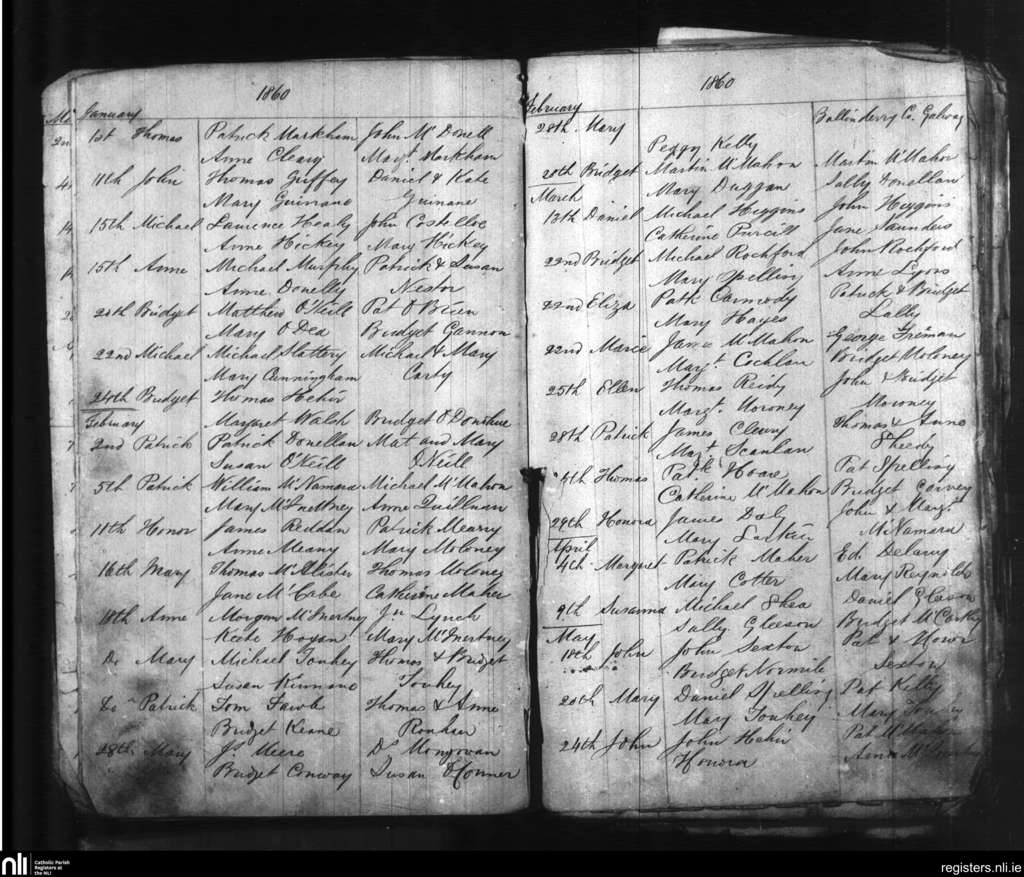 1860
January
1st Thomas Patrick Markham John McDonell
Anne Cleary Margt. Markham
11th John Thomas Griffey Daniel & Kate
Mary Guinane Guinane
15th Michael Laurence Healy John Costelloe
Anne Hickey Mary Hickey
15th Anne Michael Murphy Patrick & Susan
Anne Donelly Nestor
20th Bridget Matthew O'Neill Pat O'Brien
Mary O'Dea Bridget Gannon
22nd Michael Michael Slattery Michael & Mary
Mary Cunningham Carty
24th Bridget Thomas Hehir
Margret Walsh Bridget O'Donohue
February
2nd Patrick Patrick Donellan Mat and Mary
Susan O'Neill O'Neill
5th Patrick William McNamara Michael McMahon
Mary Anne Quillinan
11th Honor James Reddan Patrick Meany
Anne Meany Mary Moloney
16th Mary Thomas McAlister Thomas Moloney
Jane McCabe Catherine Maher
18th Anne Morgan McInertney Jn Lynch
Kate Hogan Mary McInertney
Do Mary Michael Touhey Thomas & Bridget
Susan Kinnane Touhey
Do Patrick Tom Thomas & Anne
Bridget Keane
28th Mary Js. Meere Mongovan
Bridget Conway Susan O'Connor
1860
February
28th Mary Ballinderry Co. Galway
Peggy Kelly
20th Bridget Martin McMahon Martin McMahon
Mary Duggan Sally Donellan
March
13th Daniel Michael Higgins John Higgins
Catherine Purcill Jane Saunders
22nd Bridget Michael Rochford John Rochford
Mary Spelling Anne Lyons
22nd Eliza Patk Carmody Patrick & Bridget
Mary Hayes Lally
22nd Marie James McMahon George Freman
Margt. Cochlan Bridget Moloney
25th Ellen Thomas Reidy John & Bridget
Margt. Moroney Moroney
28th Patrick James Cleary Thomas & Anne
Margt. Scanlan Sheedy
5th Thomas Patk Hoare Pat Spelling
Catherine McMahon Bridget Garvey
29th Honora James Daly John & Margt.
Mary Larkin McNamara
April
4th Margret Patrick Maher Ed. Delany
Mary Cotter Mary Reynolds
9th Susanna Michael Shea Daniel Gleason
Sally Gleeson Bridget McCarthy
May
18th John John Sexton Pat & Honor
Bridget Normile Sexton
20th Mary Daniel Spelling Pat Kelly
Mary Touhey Mary Touhey
24th John John Hehir Pat
Honora
nli
Catholic Parish
Registers at
the NLI
registers.nli.ie